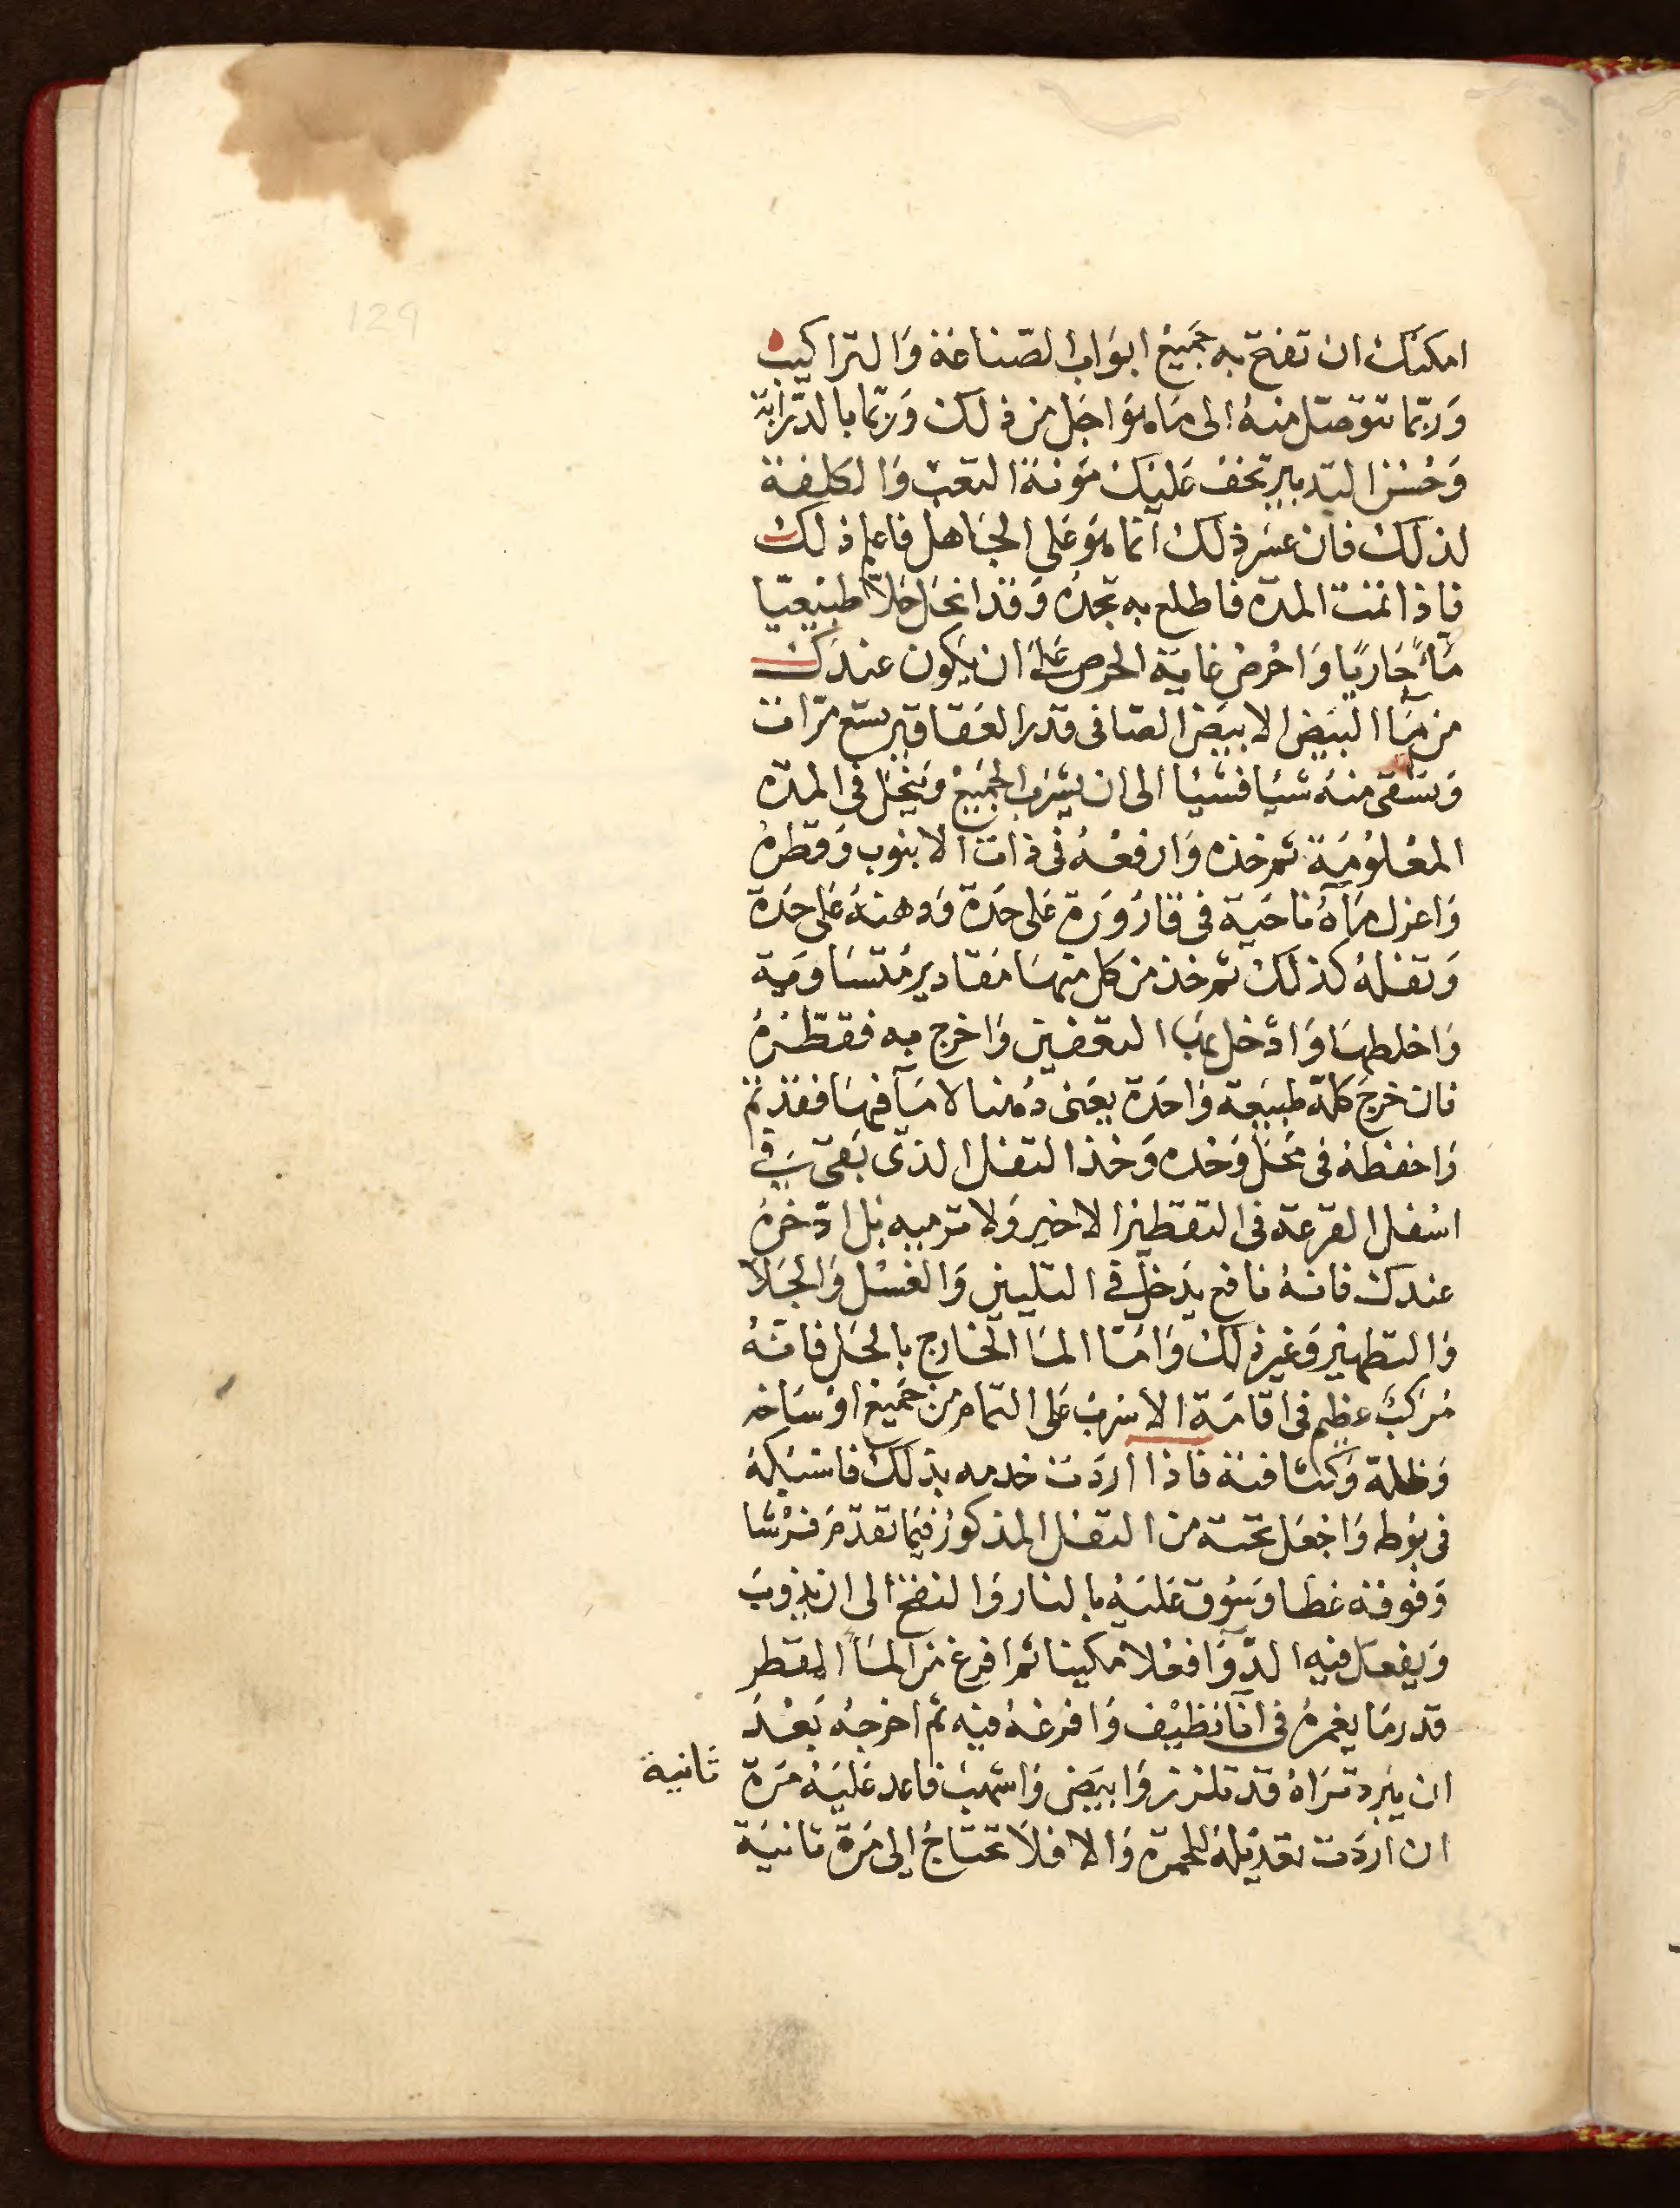 129
امكنك ان تفتح به جَميعُ ابوَاب الصّناعَة وَالتراكيب
وَربّما تتوَصّل منهُ الى مَاهوَ اجَل من ذلكَ وَربّما بالدّرابَة
وَحُسْن التدبير تخفُ عَليكَ مَؤنة التعبْ وَالكلفَة
لذلكَ فان عسَر ذلك انما هوَ عَلى الجَاهل فاعلم ذلك
فاذا تمت المدّه فاطلع به تجدُه وَقد انحَل حَلاًّ طبيْعيّا
مَاءً جَاريًا وَاحْرصْ غايَة الحرص عَلى ان يكون عندَك
من مَاء البيَض الابيَض الصّافى قدر العَقاقير سبع مرّات
وَتسَقى منهُ شيْا فشيْا الى ان يشرَب الجَميعْ وَينحَل فى المدّه
المعْلوُمَة ثم خذه وَارفعْهُ فى ذات الانبوب وَقطرهُ
وَاعزل مَآهُ ناحَية فى قارُورَة عَلى حدَة وَدهنهُ عَلى حدَة
وَتفلهُ كذلكَ ثم خذ من كل منهَا مَقادير مُتسَاويَة
وَاخلطهَا وَادْخل بهَا التعفين وَاخرج به فقطّرْهُ
فان خرجَ كلهُ طبيعَة وَاحدَة يعَنى دُهنا لا مَآ فيهَا فقد تم
وَاحفظهُ فى محَل وَحْده وَخذ التفل الذى بَقى فى
اسْفل القرعَة فى التقطير الاخير وَلا ترميه بَل ادّخرهُ
عندكَ فانهُ نافع يدَخل فى التليين وَالغسْل وَالجَلا
وَالتطهير وَغير ذلكَ وَامّا المَا الخارج بالحَل فانهُ
مُرَكبُ عظيم فى اقامَة الاسْربْ عَلى التمام من جَميع اوْسَاخه
وَظلمة وَكثافته فاذا اردَت خدمه بذلكَ فاسْبكهُ
فى بوَطه وَاجْعَل تحته من التفل المذكورُ فيمَا تقدّمَ فرْشا
وَفوقهُ غطا وَسُوق عَليْهُ بالنار وَالنفخ الى ان يذوبَ
وَيفعَل فيه الدّوَا فعْلا مَكينا ثم افرغ من المَآ المقطر
قدر مَا يغمرهُ فى انآ نظيف وَافرغهُ فيه ثم اخرجهُ بَعْدَ
ان يبرد ترَاهُ قد تلزز وَابيَض وَاشهبَ فاعد عَليْهُ مَرة ثانية
ان اردَت تعديْلهُ للحمرَه وَالا فلا تحتاجُ الى مَرة ثانيَة